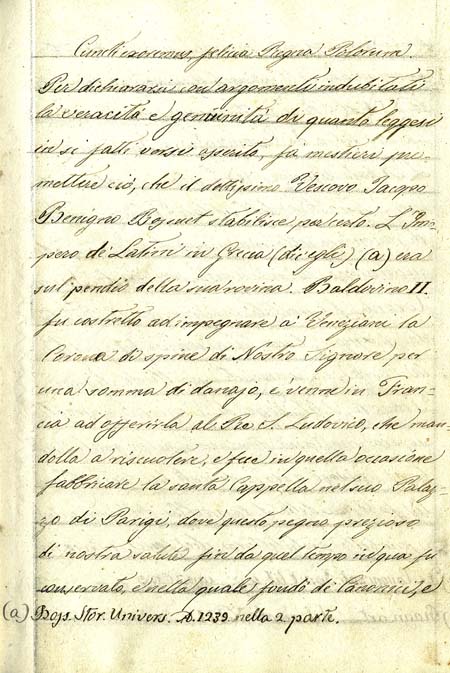 Cuncti exoremus, felicia Regna Polorum.
Per dichiarazii con argomenti indubitati
la veracità e genuinità di quanto leggesi
in sì fatti versi asserito, fa mestieri pre-
mettere ciò, che il dottissimo Vescovo Jacopo
Benigno Bossuet stabilisce per certo. L'Im-
pero de' Latini in Grecia (dic'egli) (a) era
sul pendio della sua rovina. Baldovino II.
fu costretto ad impegnare a' Veneziani la
Corona di spine di Nostro Signore per
una somma di danajo, e venne in Fran-
cia ad offerirla al Re S. Ludovico, che man-
dolla a riscuotere, e fece in quella occasione
fabbricare la santa Cappella nel suo Palaz-
zo di Parigi, dove questo pegno prezioso
di nostra salute fin da quel tempo in qua fu
conservato, e nella quale fondò de' Canonici, e
(a) Boss. Stor. Univers. A. 1239. nella 2 parte.